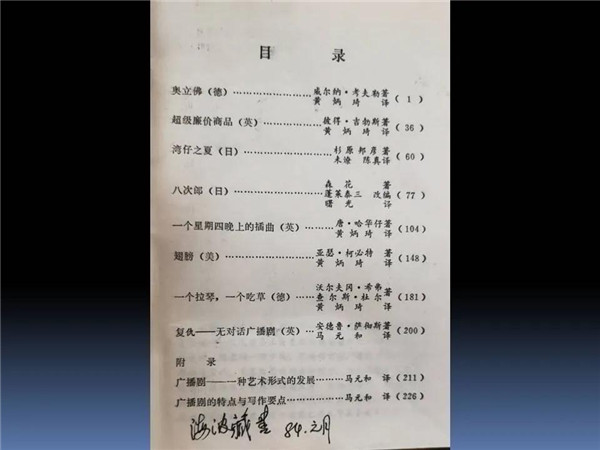 目 录
奥立佛（德）……………………威尔纳·考夫勒著
黄炳琦译（1）
超级廉价商品（英）……………彼得·吉勃斯著
黄炳琦译（36）
湾仔之夏（日）…………………杉原邦彦著
未浍 陈真译（60）
八次郎（日）……………………森花著
蓬莱泰三 改编（77）
曙光译
一个星期四晚上的插曲（英）……唐·哈华仔著
黄炳琦译（104）
翅膀（美）………………………亚瑟·柯必特著
黄炳琦译（148）
一个拉琴，一个吃草（德）………沃尔夫冈·希弗
查尔斯·杜尔著（181）
黄炳琦译
复仇——无对话广播剧（英）……安德鲁·萨彻斯著
马元和译（200）
附 录
广播剧——一种艺术形式的发展………马元和 译（211）
广播剧的特点与写作要点……………马元和 译（226）
海波藏书 84.元月